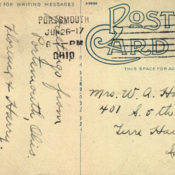 FOR WRITING MESSAGES
PORTSMOUTH
JUN 26-17
OHIO
POST
CARD
THIS SPACE FOR
Greetings from
Portsmouth, Ohio.
Florence & Harry.
Mrs. W. A. Ha
401 S. 6th
Terre Hau